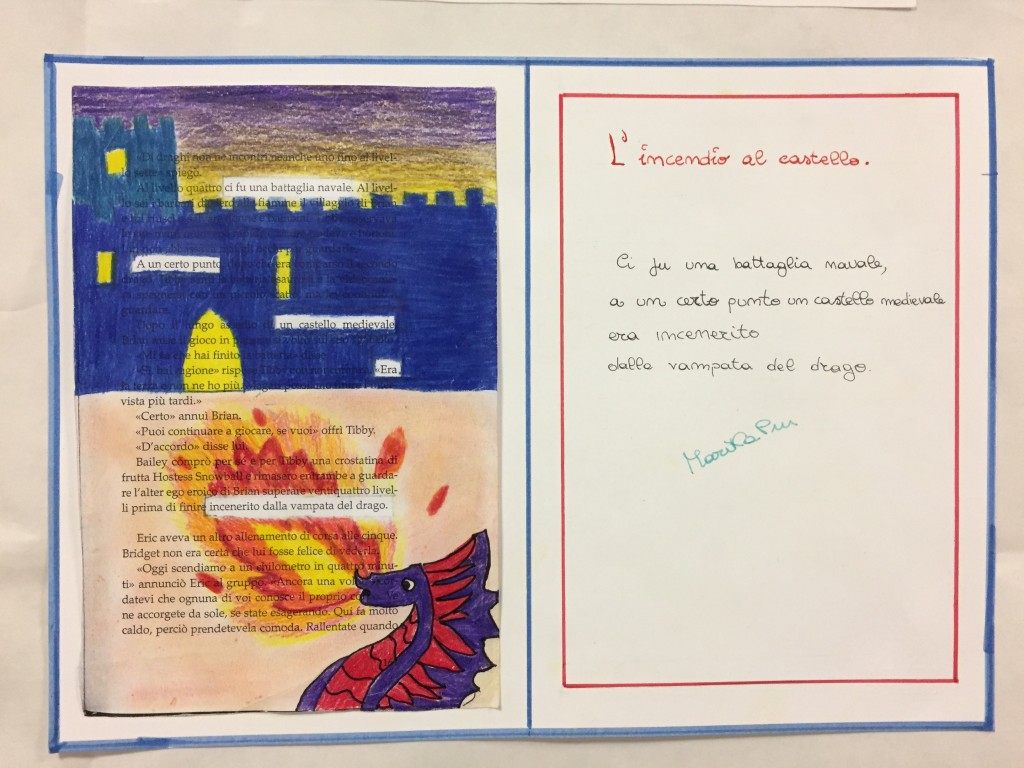 «Di draghi non ne incontri neanche uno fino al livel-
lo sette» spiegò.
Al livello quattro ci fu una battaglia navale. Al livel-
lo sei i barbari diedero alle fiamme il villaggio di Brian
A un certo punto
Dopo il lungo assedio di un castello medievale
Brian mise il gioco in pausa
hai finito la batteria» disse
«Hai ragione» rispose Tibby «Era
la terza e non ne ho più.
vista più tardi.»
«Certo» annuì Brian.
«Puoi continuare a giocare, se vuoi» offrì Tibby.
«D'accordo» disse lui.
Bailey comprò per sé e per Tibby una crostatina di
frutta Hostess Snowball e rimasero entrambe a guarda-
re l'alter ego eroico di Brian superare ventiquattro livel-
li prima di finire incenerito dalla vampata del drago.
Eric aveva un altro allenamento di corsa alle cinque.
Bridget non era certa che lui fosse felice di vederla.
«Oggi scendiamo a un chilometro in quattro minu-
ti» annunciò Eric al gruppo. «Ancora una volta, ricor-
datevi che ognuna di voi conosce il proprio corpo. Ve
ne accorgete da sole, se state esagerando. Qui fa molto
caldo, perciò prendetevela comoda. Rallentate quando
L'incendio al castello.
Ci fu una battaglia navale,
a un certo punto un castello medievale
era incenerito
dalla vampata del drago.
Marika